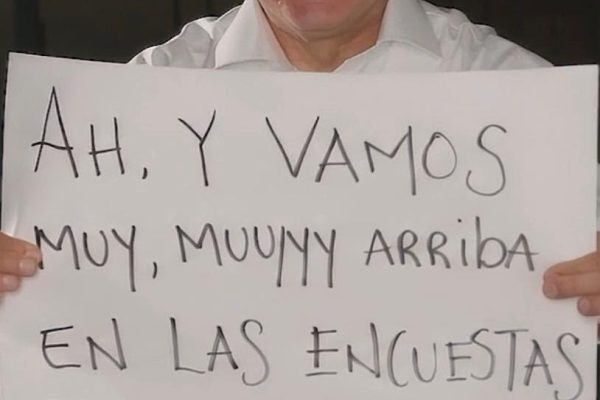 AH, Y VAMOS
MUY, MUUYYY ARRIBA
EN LAS ENCUESTAS